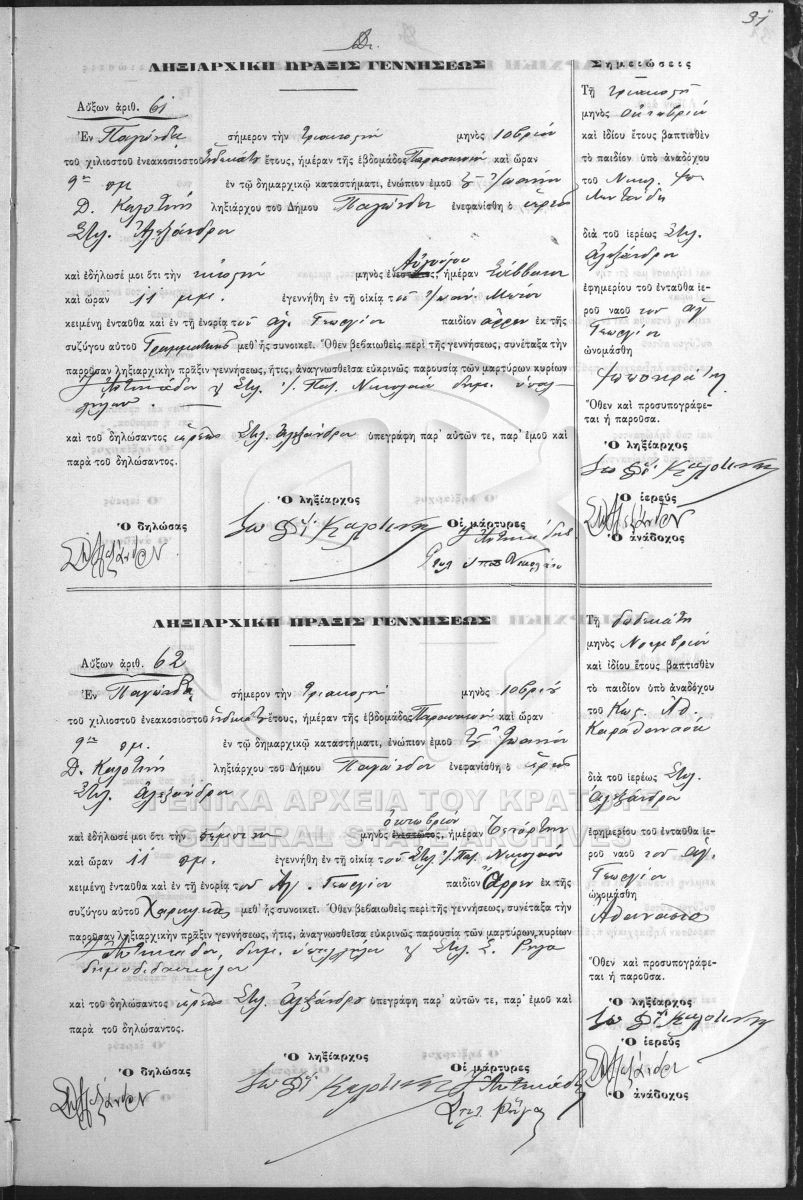 31
ΛΗΞΙΑΡΧΙΚΗ ΠΡΑΞΙΣ ΓΕΝΝΗΣΕΩΣ
Αὔξων ἀριθ. 61
Ἐν Παγώνδα σήμερον τὴν τριακοστὴ μηνὸς 10βρίου
τοῦ χιλιοστοῦ ἐνεακοσιοστοῦ ἑνδεκάτου ἔτους, ἡμέραν τῆς ἑβδομάδος Παρασκευὴ καὶ ὥραν
9ην πμ ἐν τῷ δημαρχικῷ καταστήματι, ἐνώπιον ἐμοῦ Ἰωάννη
Δ. Καλοτίνη ληξιάρχου τοῦ Δήμου Παγώνδα ἐνεφανίσθη ὁ ἱερεὺς
Στυλ. Ἀλεξάνδρου
καὶ ἐδήλωσέ μοι ὅτι τὴν εἰκοστὴ μηνὸς ἐνεστῶτος Αὐγούστου, ἡμέραν Σάββατον
καὶ ὥραν 11 μμ. ἐγεννήθη ἐν τῇ οἰκίᾳ τοῦ
κειμένῃ ἐνταῦθα καὶ ἐν τῇ ἐνορίᾳ τοῦ Ἁγ. Γεωργίου παιδίον ἄρρεν ἐκ τῆς
συζύγου αὐτοῦ Γραμματικῆς μεθ' ἧς συνοικεῖ. Ὅθεν βεβαιωθεὶς περὶ τῆς γεννήσεως, συνέταξα τὴν
παροῦσαν ληξιαρχικὴν πρᾶξιν γεννήσεως, ἥτις, ἀναγνωσθεῖσα εὐκρινῶς παρουσίᾳ τῶν μαρτύρων κυρίων
Στυλ. Παπ. Νικολάου δημ. ὑπαλ-
λήλου
καὶ τοῦ δηλώσαντος ἱερέως Στυλ. Ἀλεξάνδρου ὑπεγράφη παρ' αὐτῶν τε, παρ' ἐμοῦ καὶ
παρὰ τοῦ δηλώσαντος.
Ὁ ληξίαρχος
Ὁ δηλώσας
Οἱ μάρτυρες
Σημειώσεις
Τῇ τριακοστῇ
μηνὸς Ὀκτωβρίου
καὶ ἰδίου ἔτους βαπτισθὲν
τὸ παιδίον ὑπὸ ἀναδόχου
τοῦ Νικολ.
διὰ τοῦ ἱερέως Στυλ.
Ἀλεξάνδρου
ἐφημερίου τοῦ ἐνταῦθα ἱε-
ροῦ ναοῦ τοῦ Ἁγ
Γεωργίου
ὠνομάσθη
Ὅθεν καὶ προσυπογράφε-
ται ἡ παροῦσα.
Ὁ ληξίαρχος
Ὁ ἱερεύς
Ὁ ἀνάδοχος
ΛΗΞΙΑΡΧΙΚΗ ΠΡΑΞΙΣ ΓΕΝΝΗΣΕΩΣ
Αὔξων ἀριθ. 62
Ἐν Παγώνδα σήμερον τὴν τριακοστὴ μηνὸς 10βρίου
τοῦ χιλιοστοῦ ἐνεακοσιοστοῦ ἑνδεκάτου ἔτους, ἡμέραν τῆς ἑβδομάδος Παρασκευὴ καὶ ὥραν
9ην πμ. ἐν τῷ δημαρχικῷ καταστήματι, ἐνώπιον ἐμοῦ Ἰωάννη
Δ. Καλοτίνη ληξιάρχου τοῦ Δήμου Παγώνδα ἐνεφανίσθη ὁ ἱερεὺς
Στυλ. Ἀλεξάνδρου
καὶ ἐδήλωσέ μοι ὅτι τὴν πέμπτην μηνὸς ἐνεστῶτος ὀκτωβρίου, ἡμέραν Τετάρτην
καὶ ὥραν 11 πμ. ἐγεννήθη ἐν τῇ οἰκίᾳ τοῦ Στυλ. Παπ. Νικολάου
κειμένῃ ἐνταῦθα καὶ ἐν τῇ ἐνορίᾳ τοῦ Ἁγ. Γεωργίου παιδίον Ἄρρεν ἐκ τῆς
συζύγου αὐτοῦ μεθ' ἧς συνοικεῖ. Ὅθεν βεβαιωθεὶς περὶ τῆς γεννήσεως, συνέταξα τὴν
παροῦσαν ληξιαρχικὴν πρᾶξιν γεννήσεως, ἥτις, ἀναγνωσθεῖσα εὐκρινῶς παρουσίᾳ τῶν μαρτύρων, κυρίων
δημ. ὑπαλλήλου Στυλ. Σ. Ρήγα
δημοδιδασκάλου
καὶ τοῦ δηλώσαντος ἱερέως Στυλ. Ἀλεξάνδρου ὑπεγράφη παρ' αὐτῶν τε, παρ' ἐμοῦ καὶ
παρὰ τοῦ δηλώσαντος.
Ὁ ληξίαρχος
Ὁ δηλώσας
Οἱ μάρτυρες
Στυλ. Ρήγας
Τῇ δωδεκάτῃ
μηνὸς Νοεμβρίου
καὶ ἰδίου ἔτους βαπτισθὲν
τὸ παιδίον ὑπὸ ἀναδόχου
τοῦ Κως. Ἀθ.
Καραθανάση
διὰ τοῦ ἱερέως Στυλ.
Ἀλεξάνδρου
ἐφημερίου τοῦ ἐνταῦθα ἱε-
ροῦ ναοῦ τοῦ Ἁγ.
Γεωργίου
ὠνομάσθη
Ἀθανάσιος
Ὅθεν καὶ προσυπογράφε-
ται ἡ παροῦσα.
Ὁ ληξίαρχος
Ὁ ἱερεύς
Ὁ ἀνάδοχος
ΓΕΝΙΚΑ ΑΡΧΕΙΑ ΤΟΥ ΚΡΑΤΟΥΣ
GENERAL STATE ARCHIVES